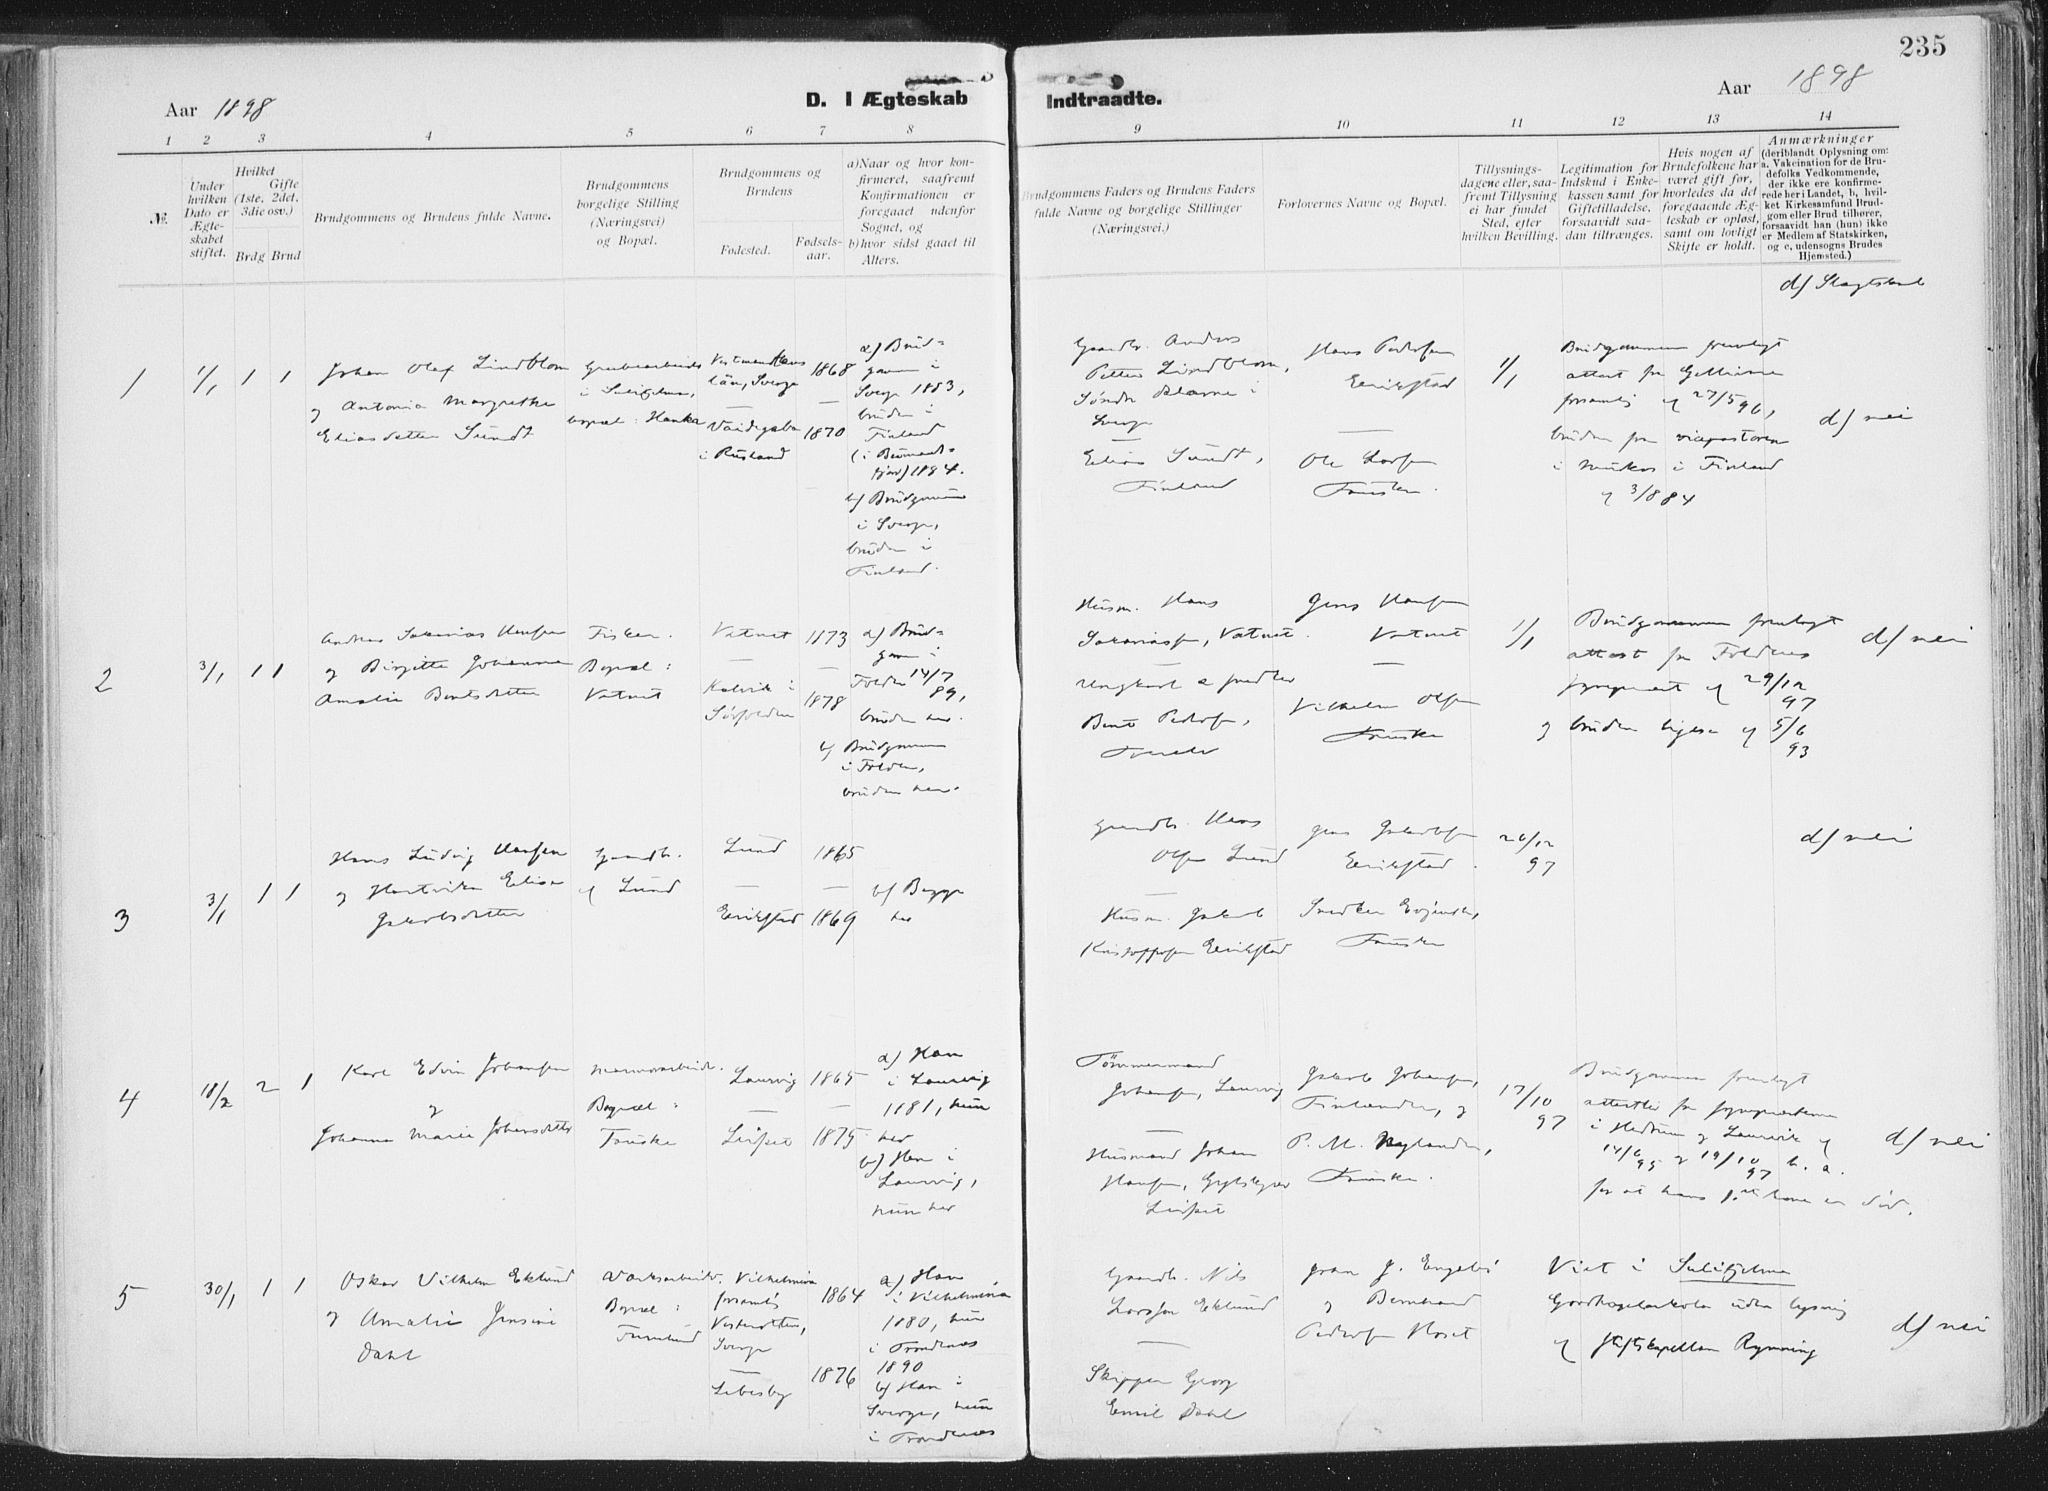 235
Aar 1898
D. I Ægteskab
Indtraadte.
Aar 1898
1 2 3 4 5 6 7 8
9 10 11 12 13 14
№.
Under
hvilken
Dato er
Ægte-
skabet
stiftet.
Hvilket
Gifte
(1ste, 2det,
3die osv.)
Brdg Brud
Brudgommens og Brudens fulde Navne.
Brudgommens
borgelige Stilling
(Næringsvei)
og Bopæl.
Brudgommens og
Brudens
Fødested.
Fødsels-
aar.
a) Naar og hvor kon-
firmeret, saafremt
Konfirmationen er
foregaaet udenfor
Sognet, og
b) hvor sidst gaaet til
Alters.
Brudgommens Faders og Brudens Faders
fulde Navne og borgelige Stillinger
(Næringsvei.)
Forlovernes Navne og Bopæl.
Tillysnings-
dagene eller, saa-
fremt Tillysning
ei har fundet
Sted, efter
hvilken Bevilling.
Legitimation for
Indskud i Enke-
kassen samt for
Giftetilladelse,
forsaavidt saa-
dan tiltrænges.
Hvis nogen af
Brudefolkene har
været gift før,
hvorledes da det
foregaaende Æg-
teskab er opløst,
samt om lovligt
Skifte er holdt.
Anmærkninger
(deriblandt Oplysning om:
a. Vakcination for de Bru-
defolks Vedkommende,
der ikke ere konfirme-
rede her i Landet, b, hvil-
ket Kirkesamfund Brud-
gom eller Brud tilhører,
forsaavidt han (hun) ikke
er Medlem af Statskirken,
og c, udensogns Brudes
Hjemsted.)
d) Slegtskab
1
1/1
1 1
Johan Olaf Lindblom
og Antonia Margrethe
Eliasdatter Sundt
Grubearbeider
i Sulitjelma,
bopæl: Hanka
Vestmanlands
län, Sverge
—
Vaidaguba
i Rusland
1868
—
1870
a) Brud-
gom i
Sverge 1883,
bruden i
Finland
(i Bumands-
fjord) 1884.
b) Brudgommen
i Sverge,
bruden i
Finland.
Gaardbr. Anders
Petter Lindblom,
Söndr
Sverge
—
Elias Sundt,
Finland
Hans Pedersen
Erikstad
—
Ole Larsen
Fauske.
1/1
Brudgommen fremlagt
attest fra Gellivare
forsamlg af 27/5 96,
bruden fra vicepastoren
i i Finland
af 3/8 84
d) nei
2
3/1
1 1
Andreas Sakarias Hansen
og Birgitte Johanna
Amalie Bentsdatter
Fisker.
Bopæl:
Vatnet
Vatnet
—
Kalvik i
Sörfolden
1873
—
1878
a) Brud-
gom i
Folden 14/7
89,
bruden her.
b) Brudgommen
i Folden,
bruden her.
Husm. Hans
Sakariasen, Vatnet.
Ungkarl
Bent Pedersen,
Jens Hansen
Vatnet
—
Vilhelm Olsen
Fauske
1/1
Brudgommen fremlagt
attest fra Foldens
sogneprest af 29/12
97
og bruden ligesaa af 5/6
93
d) nei
3
3/1
1 1
Hans Ludvig Hansen
og Hartvikka Elisa
Jakobsdatter
Gaardbr.
af Lund
Lund
—
Erikstad
1865
—
1869
b) Begge
her
Gaardbr. Hans
Olsen Lund
—
Husm. Jakob
Kristoffersen Erikstad
Jens Jakobsen
Erikstad.
Snedker Evjenth,
Fauske
26/12
97
d) nei
4
18/2
2 1
Karl Edvin Johansen
og
Johanna Marie Johansdatter
Marmorarbeider.
Bopæl:
Fauske
Laurvig
—
Leifset
1865
—
1875
a) Han
i Laurvig
1881, hun
her
b) Han i
Laurvig,
hun her
Tömmermand
Johansen, Laurvig
—
Husmand Johan
Hansen,
Leifset
Jakob Johansen,
Finlander, og
P. M. Nylander,
Fauske.
17/10
97
Brudgommen fremlagt
attester fra sogneprestene
i Hedrum og Laurvik af
14/6
95 og 19/10
97 b. a.
for at hans 1ste kone er död.
d) nei
5
30/1
1 1
Oskar Vilhelm Eklund
og Amalie Jensine
Dahl
Værksarbeider.
Bopæl:
Furulund
Vilhelmina
forsamlg
Vesterbotten,
Sverge
—
Lebesby
1864
1876
a) Han
i Vilhelmina
1880, hun
i Trondenes
1890
b) Han i
Sverge, hun
i Trondenes
Gaardbr. Nils
Larsson Eklund
—
Skipper Georg
Emil Dahl
J. Engebö
og Bernhard
Pedersen Moset
Viet i Sulitjelma
uden lysning
af Stiftskapellan Rynning
d) nei